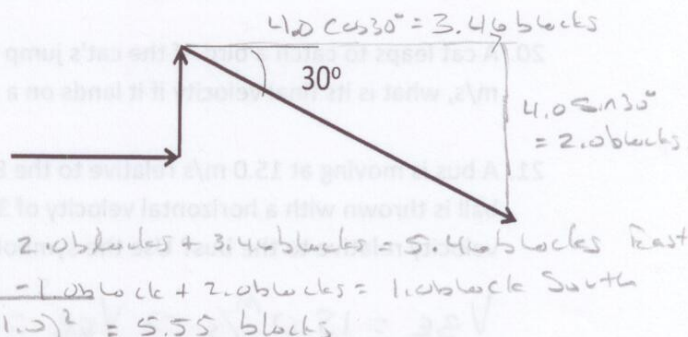 4.0 cos30° = 3.46 blocks
30°
4.0 sin30°
= 2.0 blocks
2.0 blocks + 3.46 blocks = 5.46 blocks East
-1.0 block + 2.0 blocks = 1.0 block South
1.0)² = 5.55 blocks